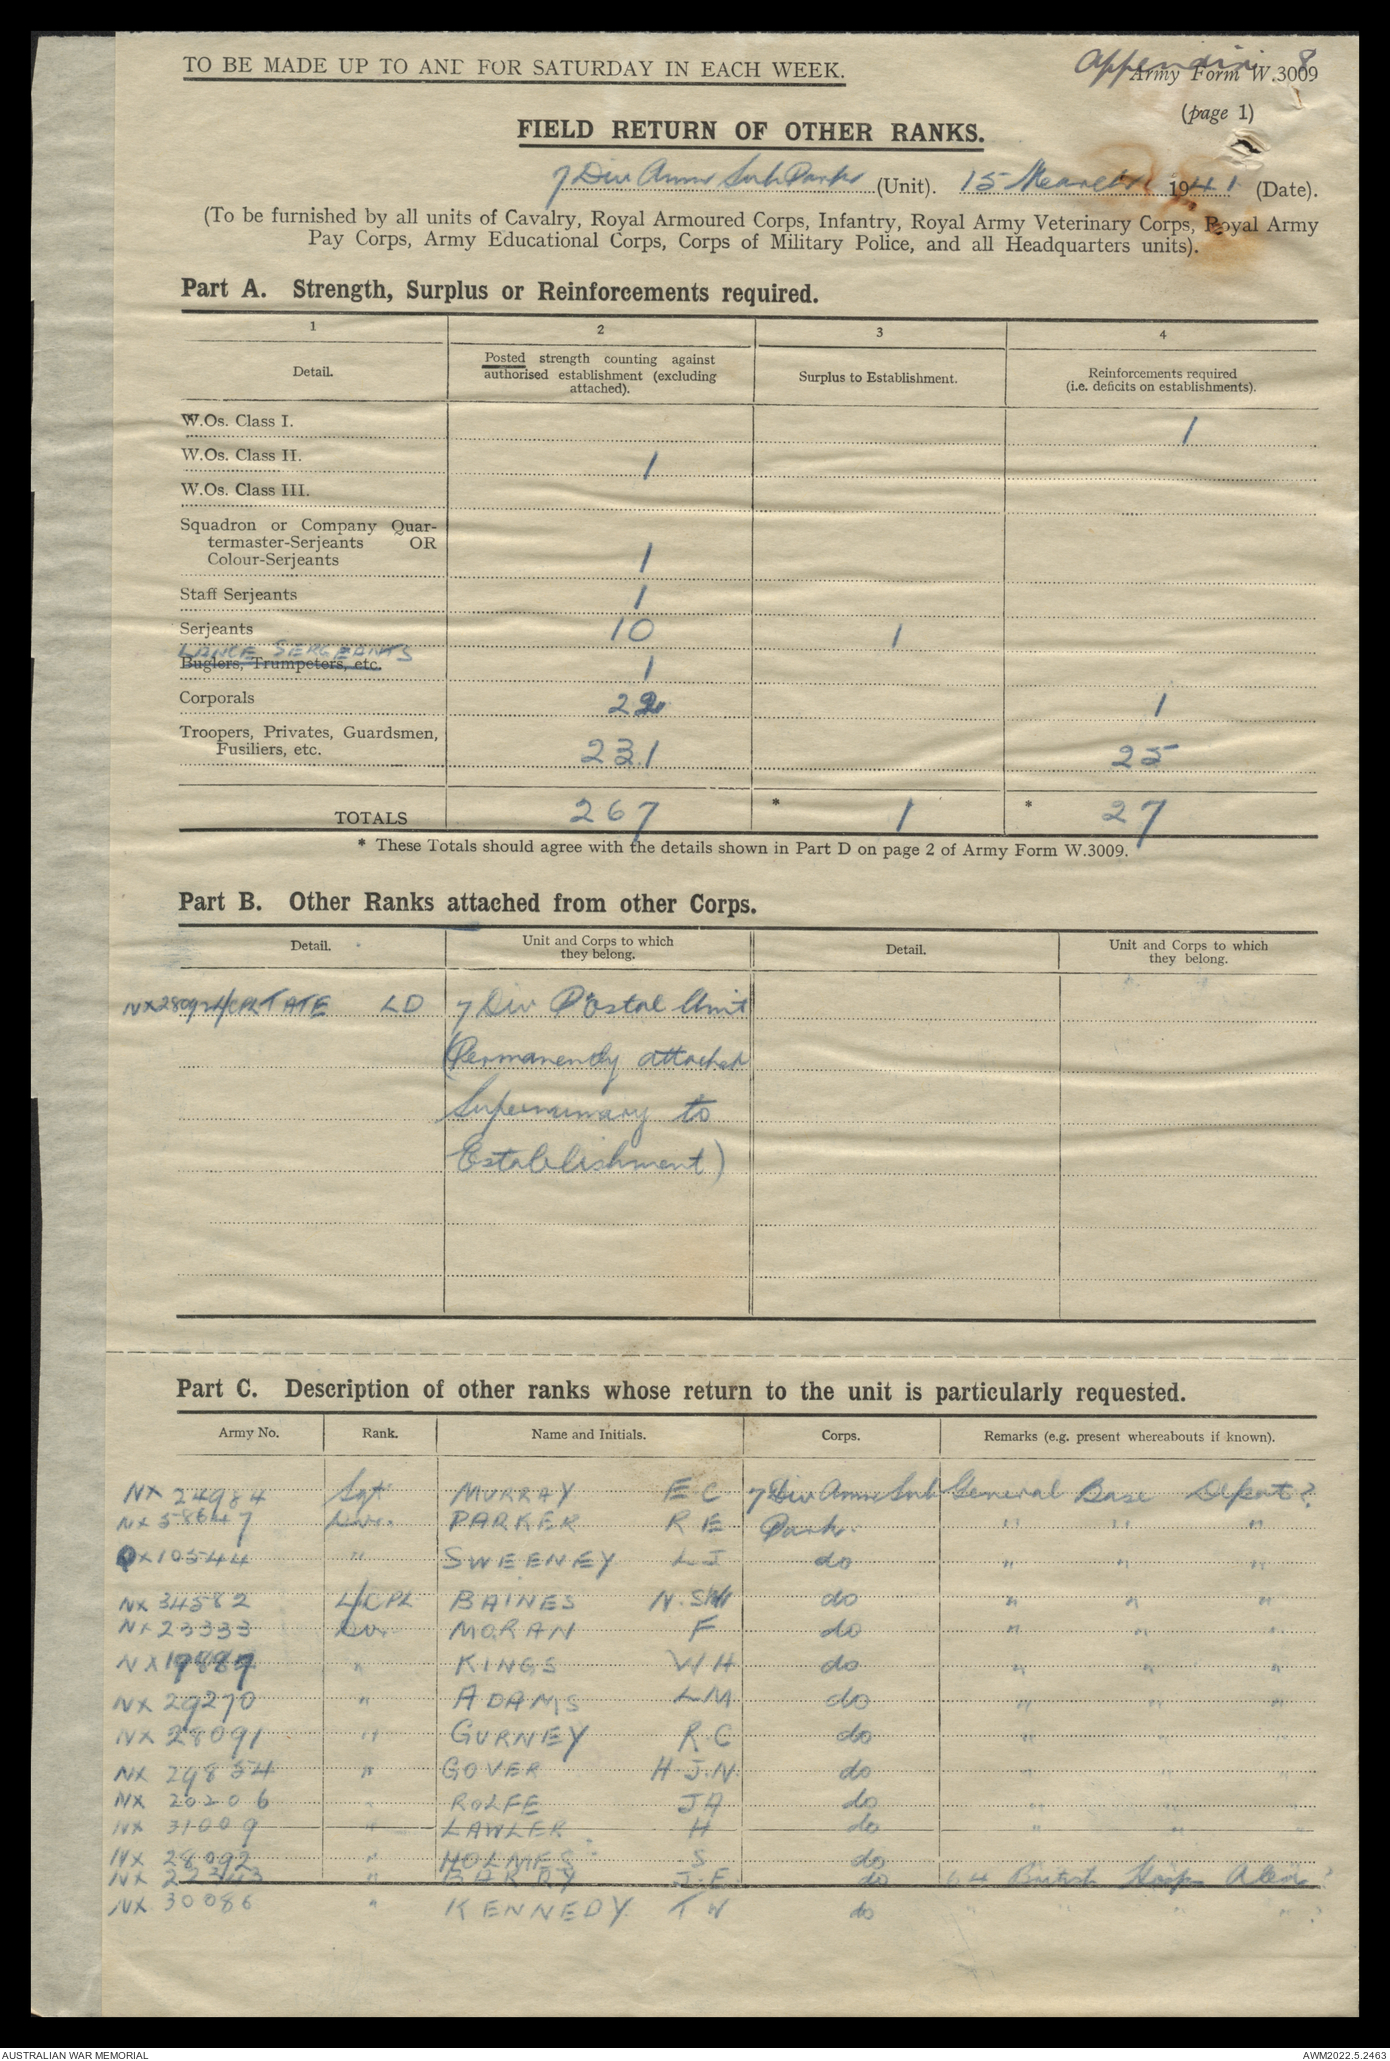 TO BE MADE UP TO AND FOR SATURDAY IN EACH WEEK.
Appendix 8
Army Form W.3009
(page 1)
FIELD RETURN OF OTHER RANKS.
7 Div Amn Sub Park (Unit). 15 March 1941 (Date).
(To be furnished by all units of Cavalry, Royal Armoured Corps, Infantry, Royal Army Veterinary Corps, Royal Army
Pay Corps, Army Educational Corps, Corps of Military Police, and all Headquarters units).
Part A. Strength, Surplus or Reinforcements required.
1 2 3 4
Detail. Posted strength counting against authorised establishment (excluding attached). Surplus to Establishment. Reinforcements required (i.e. deficits on establishments).
W.Os. Class I. 1
W.Os. Class II. 1
W.Os. Class III.
Squadron or Company Quar-
termaster-Serjeants OR
Colour-Serjeants 1
Staff Serjeants 1
Serjeants 10 1
LANCE SERGEANTS
Buglers, Trumpeters, etc. 1
Corporals 22 1
Troopers, Privates, Guardsmen,
Fusiliers, etc. 231 25
TOTALS 267 * 1 * 27
* These Totals should agree with the details shown in Part D on page 2 of Army Form W.3009.
Part B. Other Ranks attached from other Corps.
Detail. Unit and Corps to which they belong. Detail. Unit and Corps to which they belong.
NX28092 L/CPL TATE LD 7 Div Postal Unit
(Permanently attached
Supernumary to
Establishment)
Part C. Description of other ranks whose return to the unit is particularly requested.
Army No. Rank. Name and Initials. Corps. Remarks (e.g. present whereabouts if known).
NX 24984 Sgt MURRAY E C 7 Div Amn Sub General Base Depot?
NX 58647 Dvr. PARKER R E Park. " " "
QX10544 " SWEENEY L J do " " "
NX 34582 L/CPL BAINES N.SW do " " "
NX 23333 Dvr. MORAN F do " " "
NX 19887 " KINGS W H do " " "
NX 29270 " ADAMS L M do " " "
NX 28091 " GURNEY R C do " " "
NX 29854 " GOVER H J.N. do " " "
NX 20206 " ROLFE J A do " " "
NX 31009 " LAWLER H do " " "
NX 28092 " HOLMES S do
NX " BARRY J.E do 64 British Hosp Alex?
NX 30086 " KENNEDY T W do " " " " ?
AUSTRALIAN WAR MEMORIAL
AWM2022.5.2463